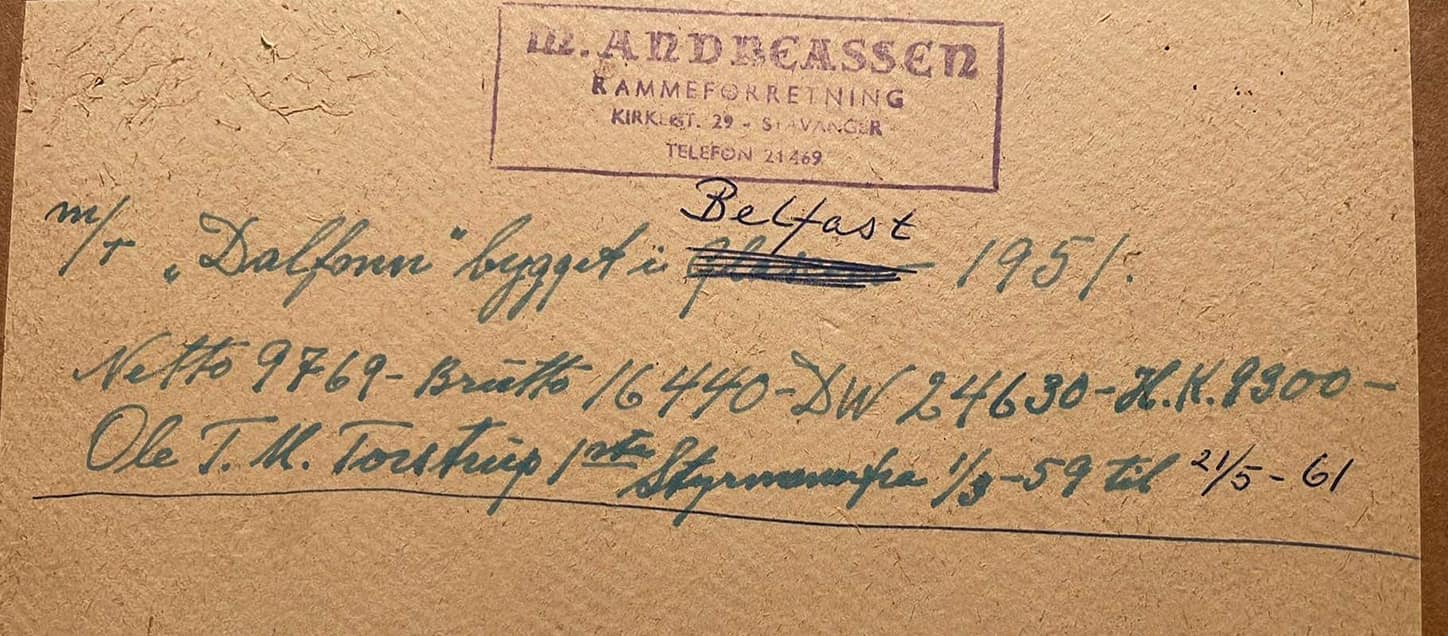 M. ANDREASSEN
RAMMEFORRETNING
KIRKEGT. 29 - STAVANGER
TELEFON 21469
Belfast
m/T „Dalfonn" bygget i 1951.
Netto 9769 - Brutto 16440 - DW 24630 - H.K. 8300 -
Ole T. M. Torstrup 1ste Styrmann fra 1/3 - 59 til 21/5 - 61